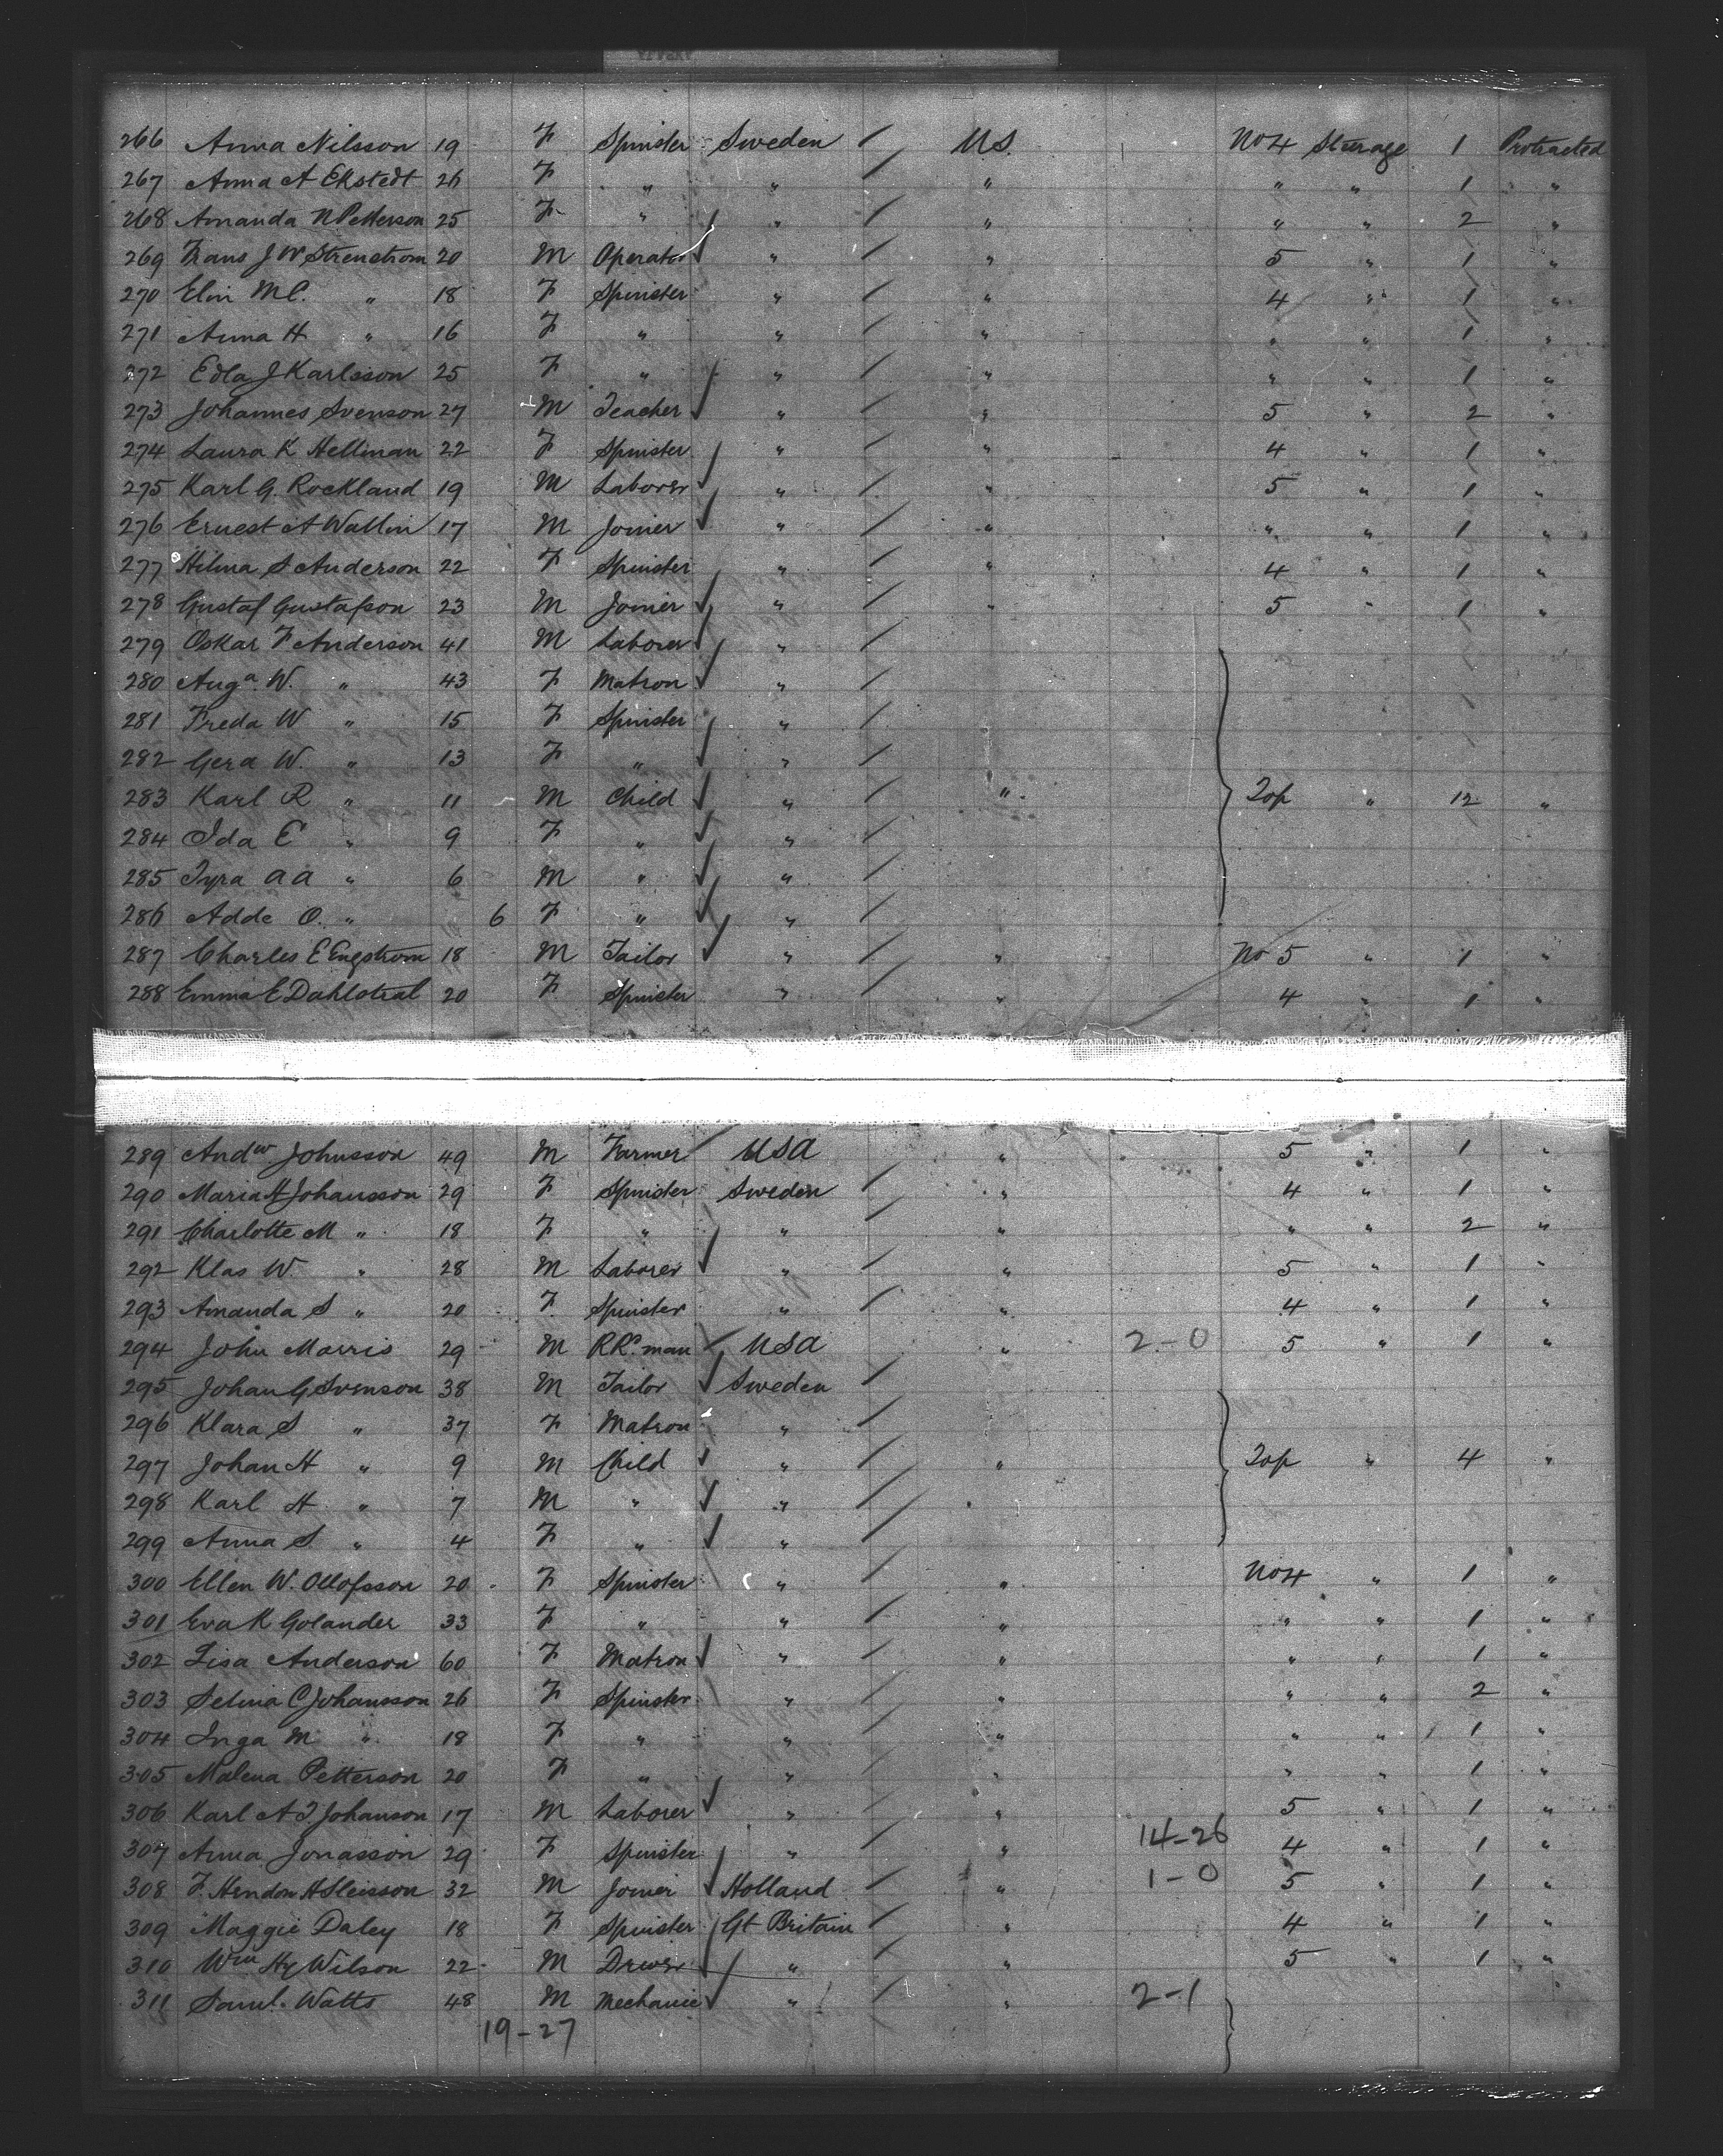 266 Anna Nilsson 19 F Spinster Sweden / U.S. No 4 Steerage 1 Protracted
267 Anna A Ekstedt 26 F " " / " " " 1 "
268 Amanda N Petterson 25 F " " / " " " 2 "
269 Frans J W Strenstrom 20 M Operator " / " 5 " 1 "
270 Elin M C. " 18 F Spinster " / " 4 " 1 "
271 Anna H " 16 F " " / " " " 1 "
272 Edla J Karlsson 25 F " " / " " " 1 "
273 Johannes Svenson 27 M Teacher " / " 5 " 2 "
274 Laura K Hellman 22 F Spinster " / " 4 " 1 "
275 Karl G. Rockland 19 M Laborer " / " 5 " 1 "
276 Ernest A Wallin 17 M Joiner " / " " " 1 "
277 Hilma S Anderson 22 F Spinster " / " 4 " 1 "
278 Gustaf Gustafson 23 M Joiner " / " 5 " 1 "
279 Oskar F Anderson 41 M Laborer " /
280 Auga. W. " 43 F Matron " /
281 Freda W " 15 F Spinster " /
282 Gera W. " 13 F " " /
283 Karl R " 11 M Child " / " Top " 12 "
284 Ida E " 9 F " " /
285 Tyra A A " 6 M " " /
286 Adde O. " 6 F " " /
287 Charles E Engstrom 18 M Tailor " / " No 5 " 1 "
288 Emma E Dahlstral 20 F Spinster " / " 4 " 1 "
289 Andw Johnsson 49 M Farmer USA " 5 " 1 "
290 Maria H Johansson 29 F Spinster Sweden / " 4 " 1 "
291 Charlotte M " 18 F " " / " " " 2 "
292 Klas W " 28 M Laborer " / " 5 " 1 "
293 Amanda S " 20 F Spinster " / " 4 " 1 "
294 John Morris 29 M RRd. man USA " 2-0 5 " 1 "
295 Johan G Svenson 38 M Tailor Sweden /
296 Klara S " 37 F Matron " /
297 Johan H " 9 M Child " / " Top " 4 "
298 Karl H " 7 M " " /
299 Anna S " 4 F " " /
300 Ellen W. Ollofsson 20 F Spinster " / " No 4 " 1 "
301 Eva K Golander 33 F " " / " " " 1 "
302 Lisa Anderson 60 F Matron " / " " " 1 "
303 Selma C Johansson 26 F Spinster " / " " " 2 "
304 Inga M " 18 F " " / " " " 1 "
305 Malena Petterson 20 F " " / " " " 1 "
306 Karl A J. Johanson 17 M Laborer " / " 5 " 1 "
307 Anna Jonasson 29 F Spinster " / " 14-26 4 " 1 "
308 F. Hendon 32 M Joiner Holland / " 1-0 5 " 1 "
309 Maggie Daley 18 F Spinster Gt Britain / " 4 " 1 "
310 Wm Hy Wilson 22 M " / " 5 " 1 "
311 Saml. Watts 48 M Mechanic " / " 2-1
19-27